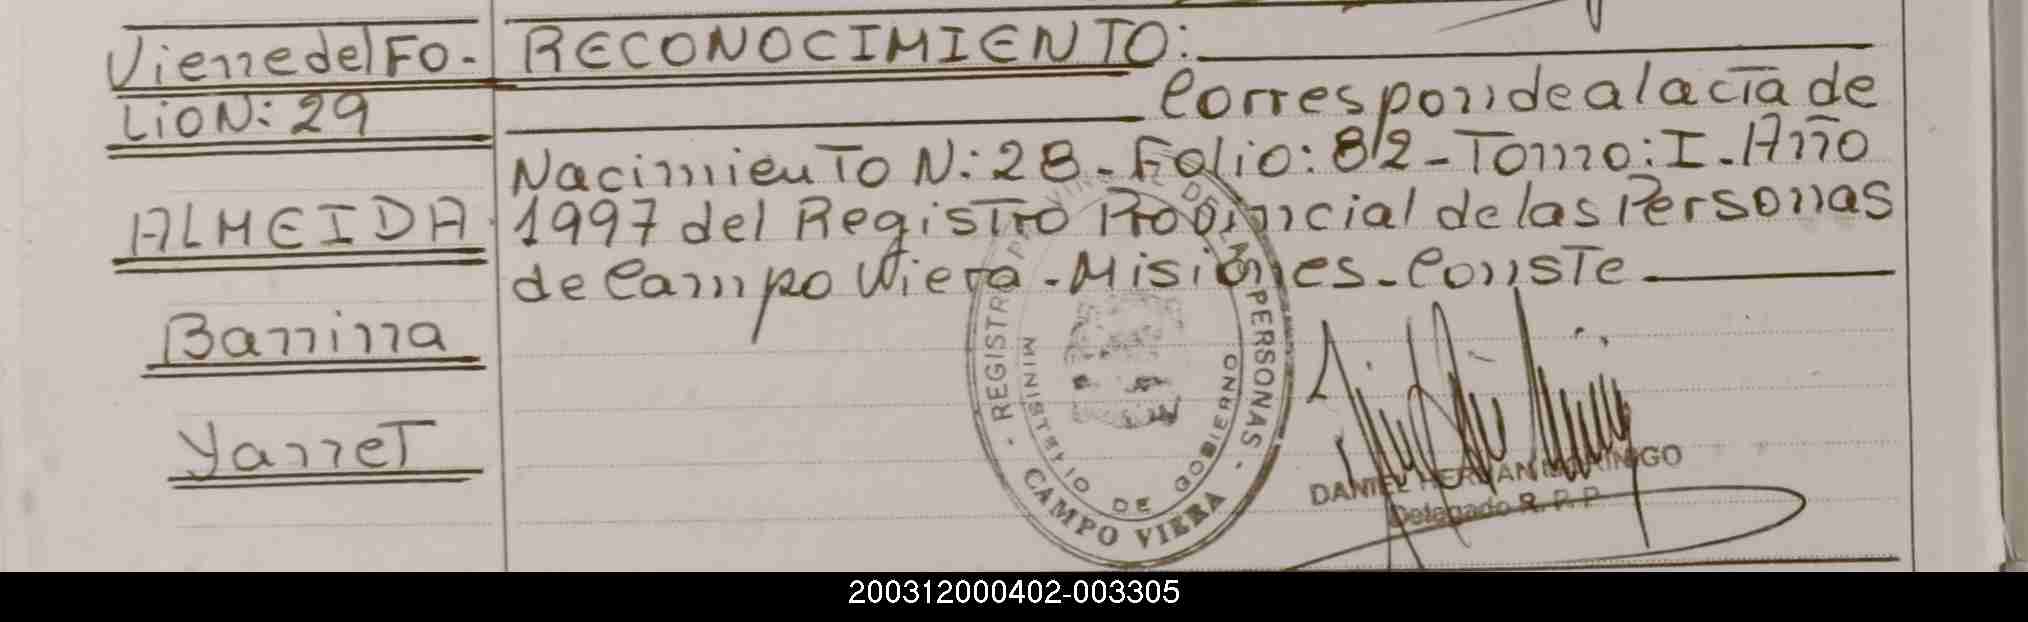 Viene del FO-
LiO N: 29
ALMEIDA
Bannina
Yannet
RECONOCIMIENTO:
Corresponde al acta de
Nacimiento N: 28 - Folio: 8/2 - Tomo: I - Año
1997 del Registro Provincial de las Personas
de Campo Viera - Misiones - Conste
REGISTRO PROVINCIAL DE LAS PERSONAS
MINISTERIO DE GOBIERNO
CAMPO VIERA
DANIEL HERNAN MORINIGO
Delegado R. P. P.
200312000402-003305